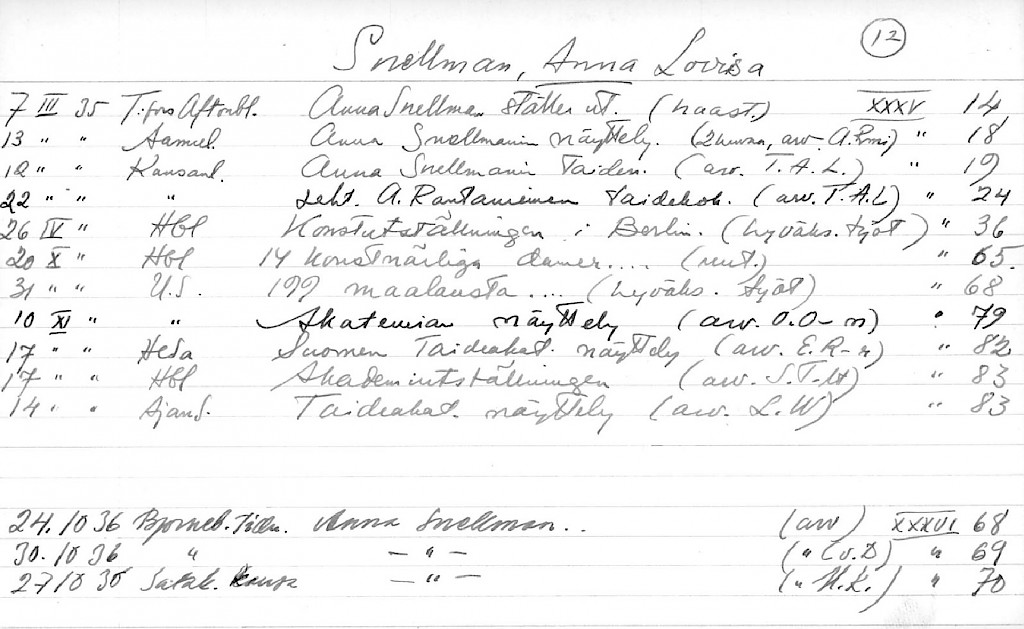 12
Snellman, Anna Lovisa
7 III 35 T:fors Aftonbl. Anna Snellman ställer ut. (haast.) XXXV 14
13 " " Aamul. Anna Snellmanin näyttely. (arv. A.Rmi) " 18
" " Kansanl. Anna Snellmanin Taiden. (arv. T.A.L.) " 19
22 " " " A. Rantaniemen taidekok. (arv. T.A.L) " 24
26 IV " Hbl Konstutställningen i Berlin. (hyväks. työt) " 36
20 X " Hbl 14 konstnärliga damer.... (uut.) " 65.
31 " " U.S. 199 maalausta .... (hyväks. työt) " 68
10 XI " " Akatemian näyttely (arv. O.O-n) " 79
17 " " HeSa Suomen Taideakat. näyttely (arv. E.R-n) " 82
17 " " Hbl Akademiutställningen (arv. S.T-lt) " 83
14 " " AjanS. Taideakat. näyttely (arv. L.W) " 83
24.10 36 Björneb. Tidn. Anna Snellman.. (arv) XXXVI 68
30.10 36 " — " — (" v.D) " 69
27 10 36 Satak. Kansa — " — (" H.K.) " 70